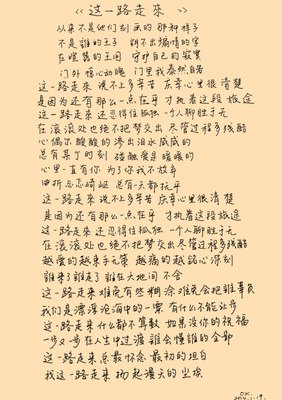 《这一路走来》
从来不是他们刻画的那种样子
不是谁的王子 斟不出煽情的字
在喧嚣的王国 守护自己的寂寞
门外惊心动魄 门里我泰然自若
这一路走来 说不上多辛苦 庆幸心里很清楚
是因为还有那么一点在乎 才执着这段旅途
这一路走来 还忍得住孤独 一个人聊胜于无
在滚滚处也绝不把梦交出 尽管过程多残酷
心偶尔酸酸的 渗出泪水咸咸的
总有某个时刻 碰触最是暖暖的
心里一直有你 为了你我不放弃
曲折忐忑崎岖 总有一天都抚平
这一路走来 说不上多辛苦 庆幸心里很清楚
是因为还有那么一点在乎 才执着这段旅途
这一路走来 还忍得住孤独 一个人聊胜于无
在滚滚处也绝不把梦交出 尽管过程多残酷
越爱的越束手无策 越痛的越铭心深刻
谁来了谁走了 谁在天地间不舍
这一路走来 难免有些糊涂 难免会把谁辜负
我们是漂浮沧海中的一粟 有什么不能让步
这一路走来 什么都不算数 如果没你的祝福
一步又一步在人生中过渡 谁会懂谁的全部
这一路走来 总最怀念 最初的坦白
我这一路走来 扬起漫天的尘埃
OK.